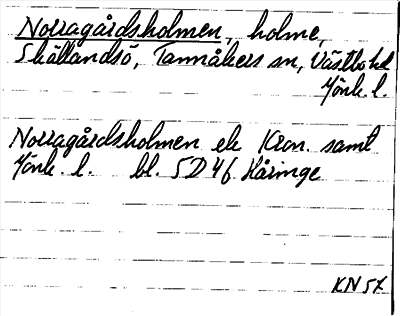 Norragårdsholmen, holme,
Skällandsö, Tannåkers sn, Västbo hd
Jönk. l.
Norragårdsholmen ek Kron. samt
Jönk. l. bl. 5D4f Håringe
KN 57